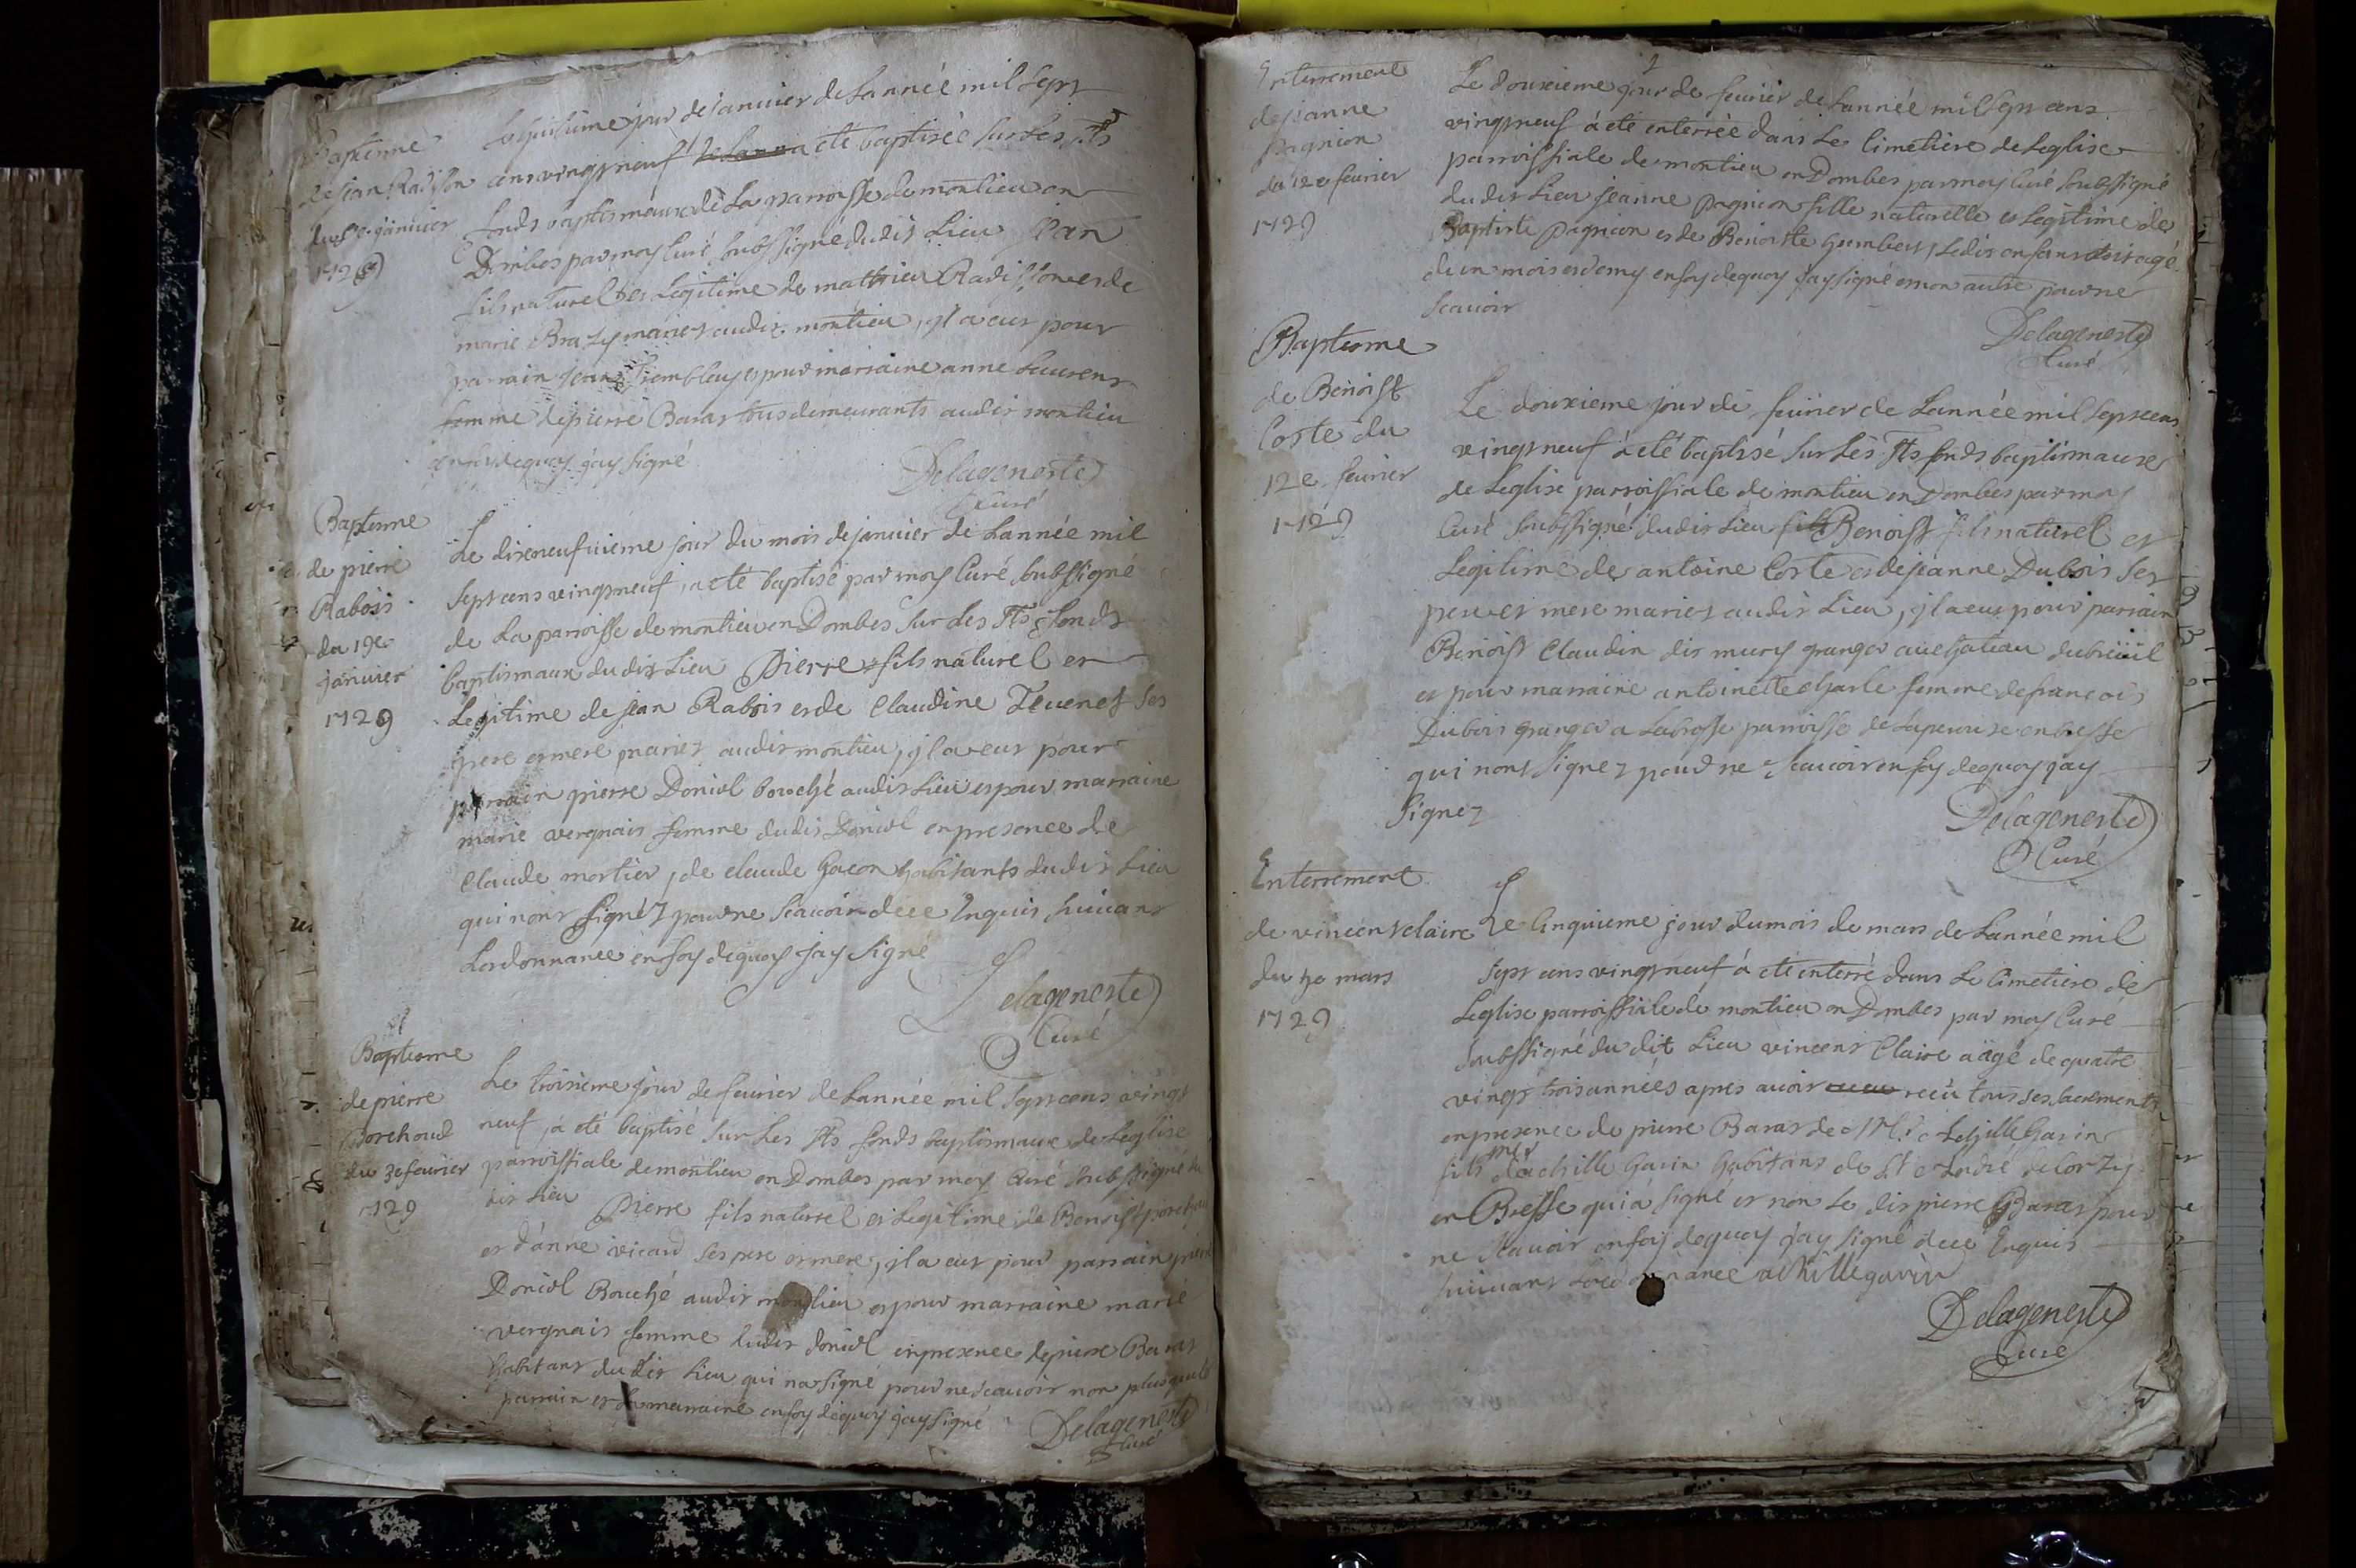 Baptesme
de jean Radisson
du 8e janvier
1729
Le huitiéme jour de janvier de Lannée mil sept
cens vingt neuf a eté baptisée sur Les Sts
fonds baptismaux de La parroisse de montieu en
Dombes par moy Curé soubssigné dudit Lieu Jean
fils naturel et Legitime de mathieu Radisson et de
marie Brazy mariez audit montieu, jl a eut pour
parrain jean Tremblay et pour marraine anne Laurens
femme de pierre Baras tous demeurants audit montieu
en foy dequoy jay signé
Delageneste
Curé
Baptesme
de pierre
Rabois
du 19e
janvier
1729
Le dixneufuiéme jour du mois de janvier de Lannée mil
sept cens vingt neuf, a eté baptisé par moy Curé soubssigné
de La parroisse de montieu en Dombes sur Les Sts fonds
baptismaux dudit Lieu Pierre fils naturel et
Legitime de jean Rabois et de Claudine Tevenet ses
pere et mere mariez audit montieu, jl a eut pour
parrain pierre Doniol bouché audit Lieu et pour marraine
marie vergnais femme dudit Doniol en presence de
Claude mortier, de claude Gacon habitants dudit Lieu
qui nont signéz pour ne scauoir de ce Enquis suiuant
Lordonnance en foy dequoy jay signé
Delageneste
Curé
Baptesme
de pierre
porchoud
du 3e feurier
1729
Le troisieme jour de feurier de Lannée mil sept cens vingt
neuf, a eté baptisé sur Les Sts fonds baptismaux de Leglise
parroissiale de montieu en Dombes par moy Curé soubssigné du
dit Lieu Pierre fils naturel et Legitime de Benoist
et danne vicard ses pere et mere, jl a eut pour parrain pierre
Doniol Bouché audit montieu et pour marraine marie
vergnais femme dudit doniol en presence de pierre Baras
habitant dudit Lieu qui na signé pour ne scauoir non plus que Le
parrain et La marraine en foy dequoy jay signé
Delageneste
Curé
Enterrement
de jeanne
pagnion
du 12e feurier
1729
Le douxieme jour de feurier de Lannée mil sept cens
vingt neuf á eté enterrée dans Le Cimetiere de Leglise
parroissiale de montieu en Dombes par moy Curé soubssigné
dudit Lieu jeanne pagnion fille naturelle et Legitime de
Baptiste pagnion et de Benoiste humbert, Ledit enfant etoit agé
dun mois et demy en foy dequoy jay signé et non autre pour ne
scauoir
Delageneste
Curé
Baptesme
de Benoist
Coste du
12e feurier
1729
Le douxieme jour de feurier de Lannée mil sept cens
vingt neuf á eté baptisé sur Les Sts fonds baptismaux
de Leglise parroissiale de montieu en Dombes par moy
Curé soubssigné dudit Lieu fils Benoist fils naturel et
Legitime de antoine Coste et de jeanne Dubois ses
pere et mere mariez audit Lieu, jl a eut pour parrain
Benoist Claudin dit mury granger au chateau dubreüil
et pour marraine antoinette charle femme de francois
Dubois granger a Labosse parroisse de Laperouse en bresse
qui nont signez pour ne scauoir en foy dequoy jay
signez
Delageneste
Curé
Enterrement
de vincent claire
du 5e mars
1729
Le Cinquieme jour du mois de mars de Lannée mil
sept cens vingt neuf á eté enterré dans Le Cimetiere de
Leglise parroissiale de montieu en Dombes par moy Curé
soubssigné du dit Lieu vincent Claire aägé de quatre
vingt trois années apres auoir receu tous ses sacrements
en presence de pierre Baras de Achille Gavin
fils dachille Gavin habitans de St André de Corzy
en Bresse qui á signé et non Le dit pierre Baras pour
ne scauoir en foy dequoy jay signé de ce Enquis
suiuant Lordonnance achille gavin
Delageneste
Curé